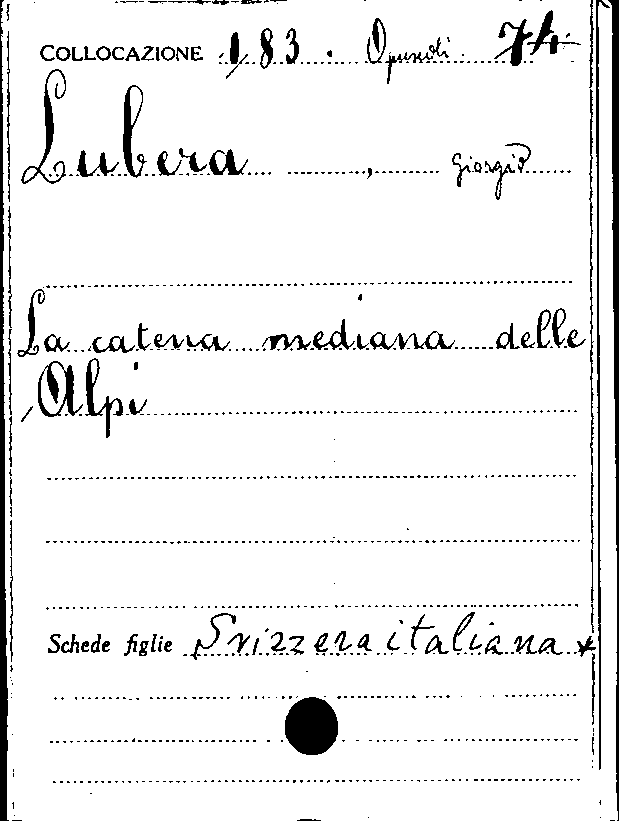 COLLOCAZIONE 183. Opuscoli 74
Lubera , Giorgio
La catena mediana delle
Alpi
Schede figlie Svizzera italiana *